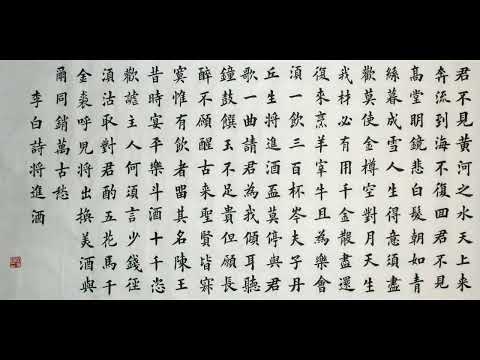 君不見黄河之水天上來
奔流到海不復回君不見
高堂明鏡悲白髮朝如青
絲暮成雪人生得意須盡
歡莫使金樽空對月天生
我材必有用千金散盡還
復來烹羊宰牛且為樂會
須一飲三百杯岑夫子丹
丘生將進酒盃莫停與君
歌一曲請君為我傾耳聽
鐘鼓饌玉不足貴但願長
醉不願醒古來聖賢皆寂
寞惟有飲者留其名陳王
昔時宴平樂斗酒十千恣
歡謔主人何為言少錢徑
須沽取對君酌五花馬千
金裘呼兒將出換美酒與
爾同銷萬古愁
李白詩將進酒